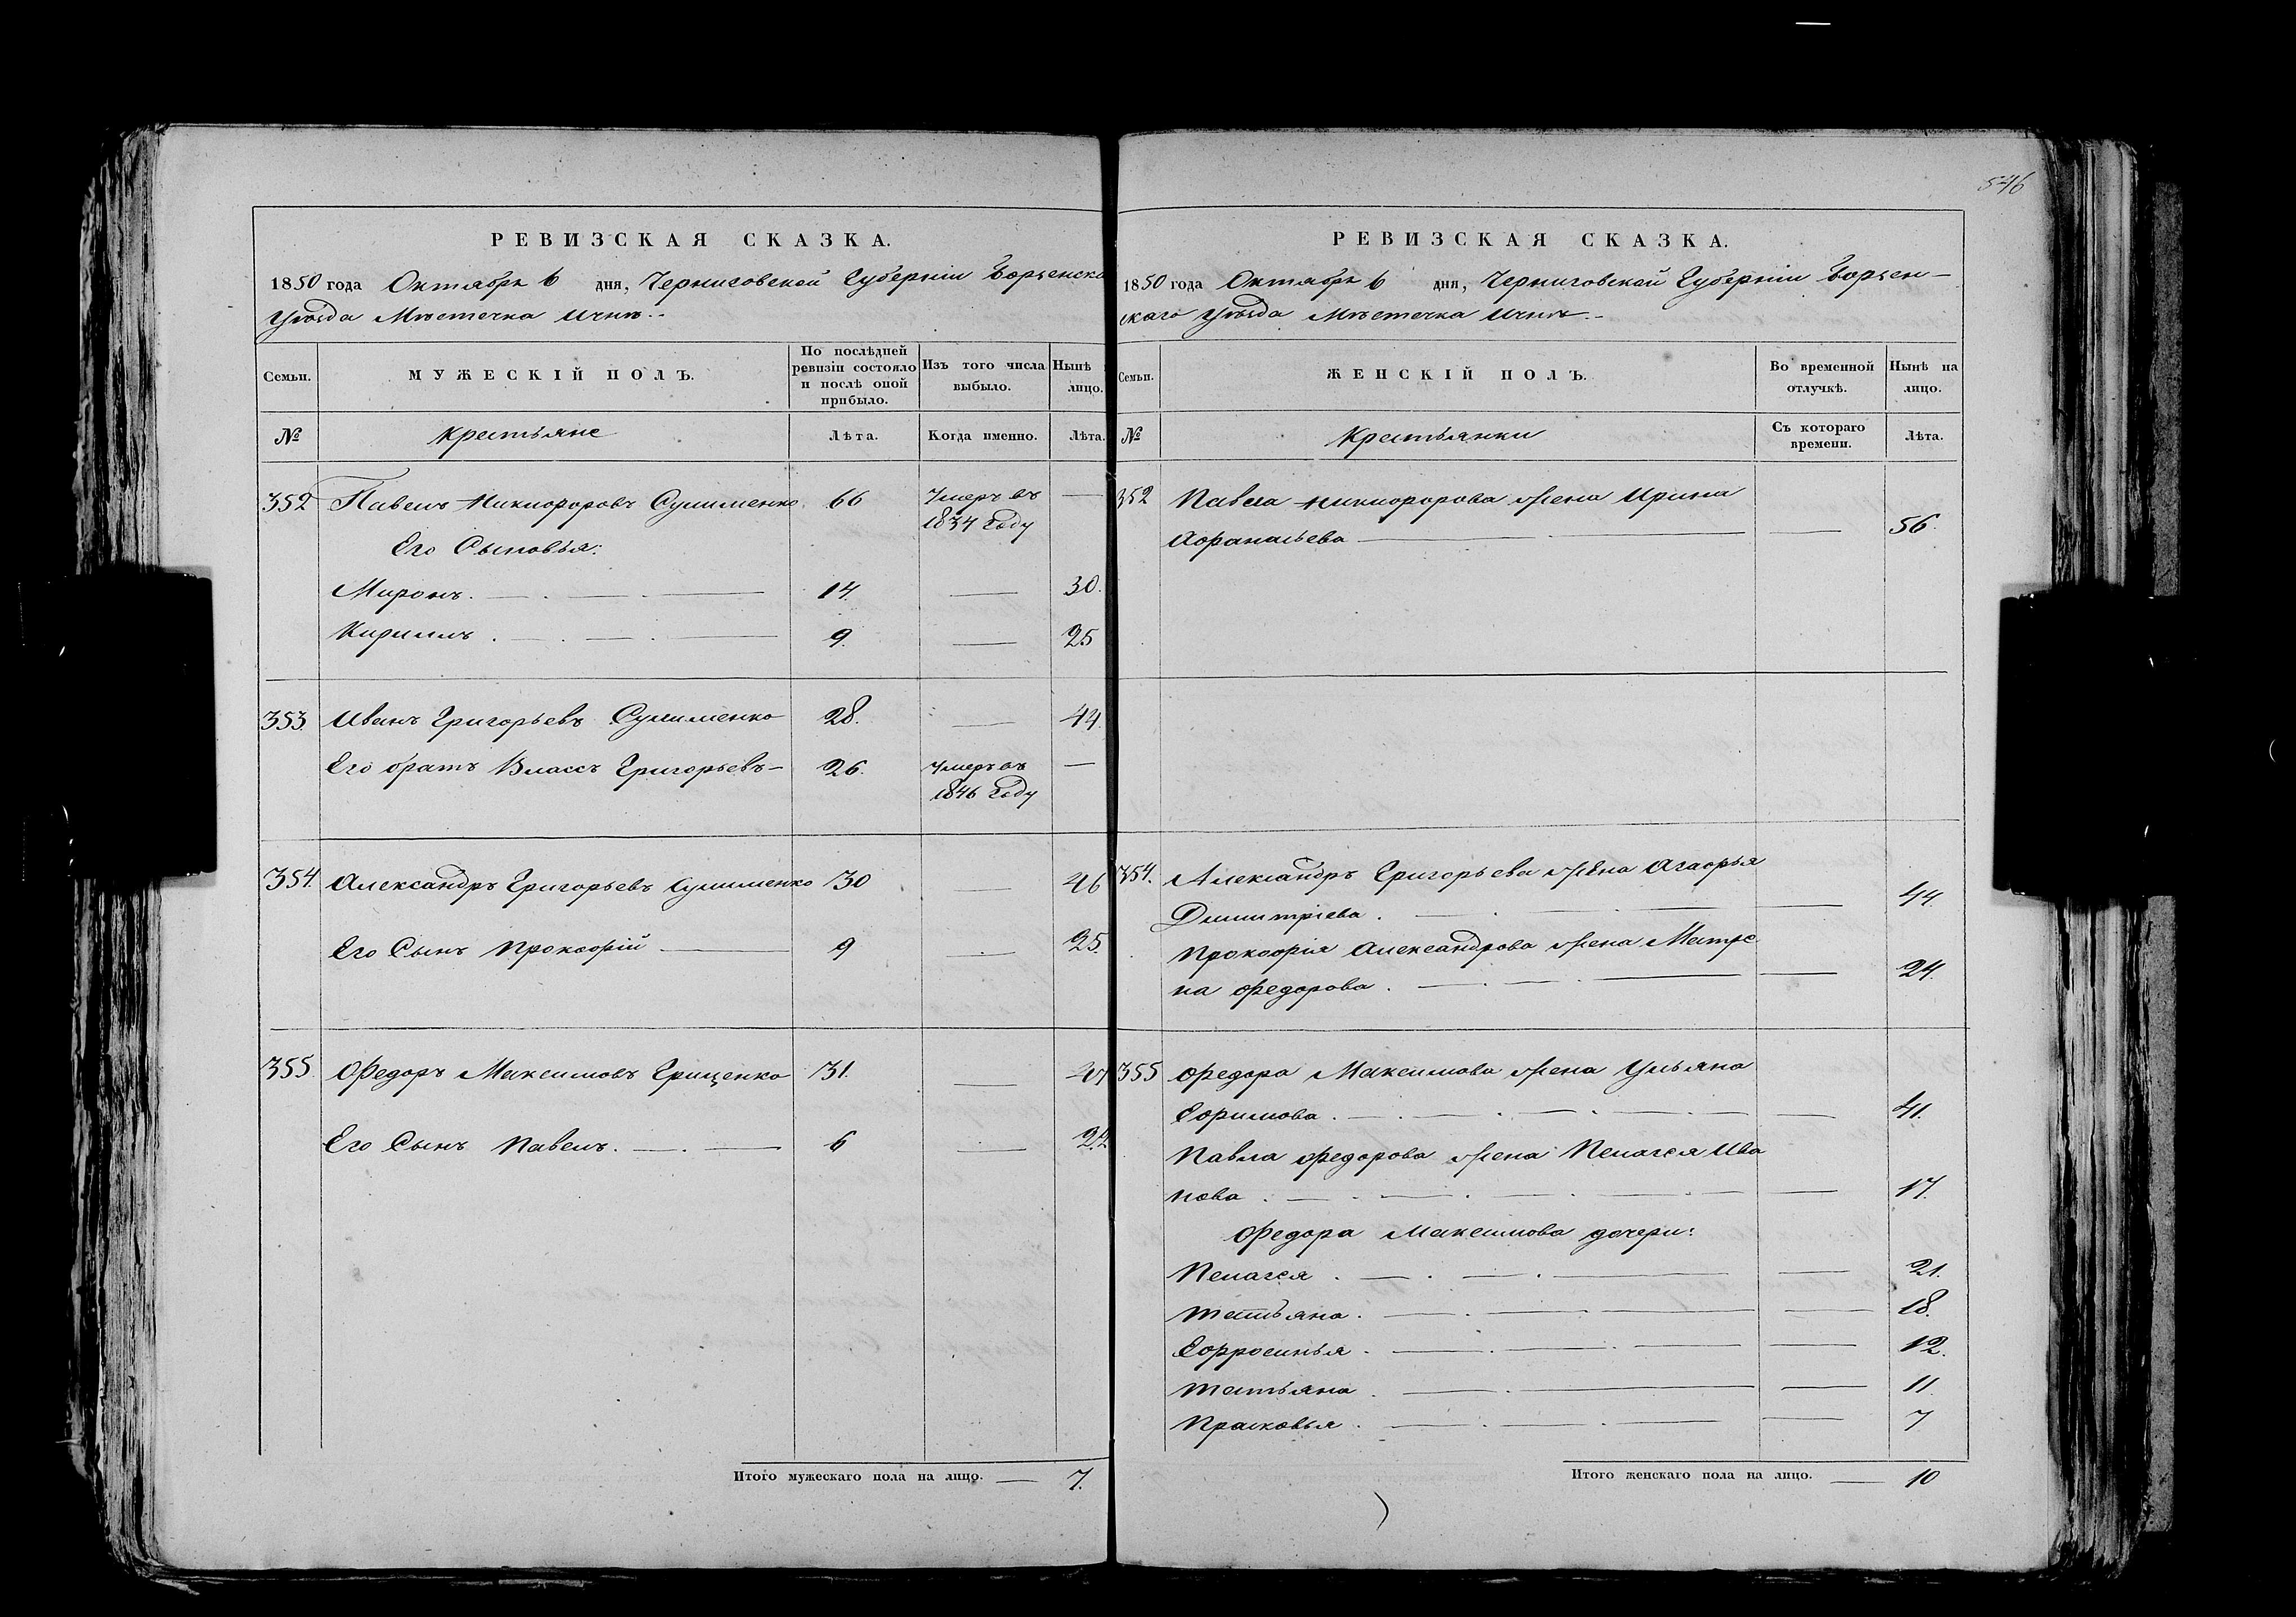 РЕВИЗСКАЯ СКАЗКА.
1850 года Октября 6 дня, Черниговской Губерніи Борзенска
Уѣзда Мѣстечка Ични.
Семьи. МУЖЕСКІЙ ПОЛЪ. По послѣдней ревизіи состояло и послѣ оной прибыло. Изъ того числа выбыло. Нынѣ лицо.
№ Крестьяне Лѣта. Когда именно. Лѣта.
352 Павелъ Никифоровъ Сулименко 66 Умеръ въ —
1834 году
Его Сыновья:
Миронъ. 14. — 30.
Кириллъ. 9. — 25
353. Иванъ Григорьевъ Сулименко 28. — 44.
Его братъ Власъ Григорьевъ 26. Умеръ въ —
1846 году
354. Александръ Григорьевъ Сулименко 30 — 46
Его Сынъ Прокофій — 9 — 25.
355. Федоръ Максимовъ Грищенко 31. — 47
Его Сынъ Павелъ. 6 — 22
Итого мужескаго пола на лицо. — 7.
546
РЕВИЗСКАЯ СКАЗКА.
1850 года Октября 6 дня, Черниговской Губерніи Борзен-
скаго Уѣзда Мѣстечка Ични.
Семьи. ЖЕНСКІЙ ПОЛЪ. Во временной отлучкѣ. Нынѣ на лицо.
№ Крестьянки Съ котораго времени. Лѣта.
352 Павла Никифорова жена Ирина
Афанасьева — 56.
354. Александръ Григорьева жена Агафья
Димитріева. — 44.
Прокофія Александрова жена Матре
на Федорова. — 24.
355 Федора Максимова жена Ульяна
Ефимова. — 41.
Павла Федорова жена Пелагея Ива
нова. — 17.
Федора Максимова дочери:
Пелагея. — 21.
Татьяна. — 18.
Ефросинья. — 12.
Татьяна. — 11.
Прасковья. — 7
Итого женскаго пола на лицо. — 10